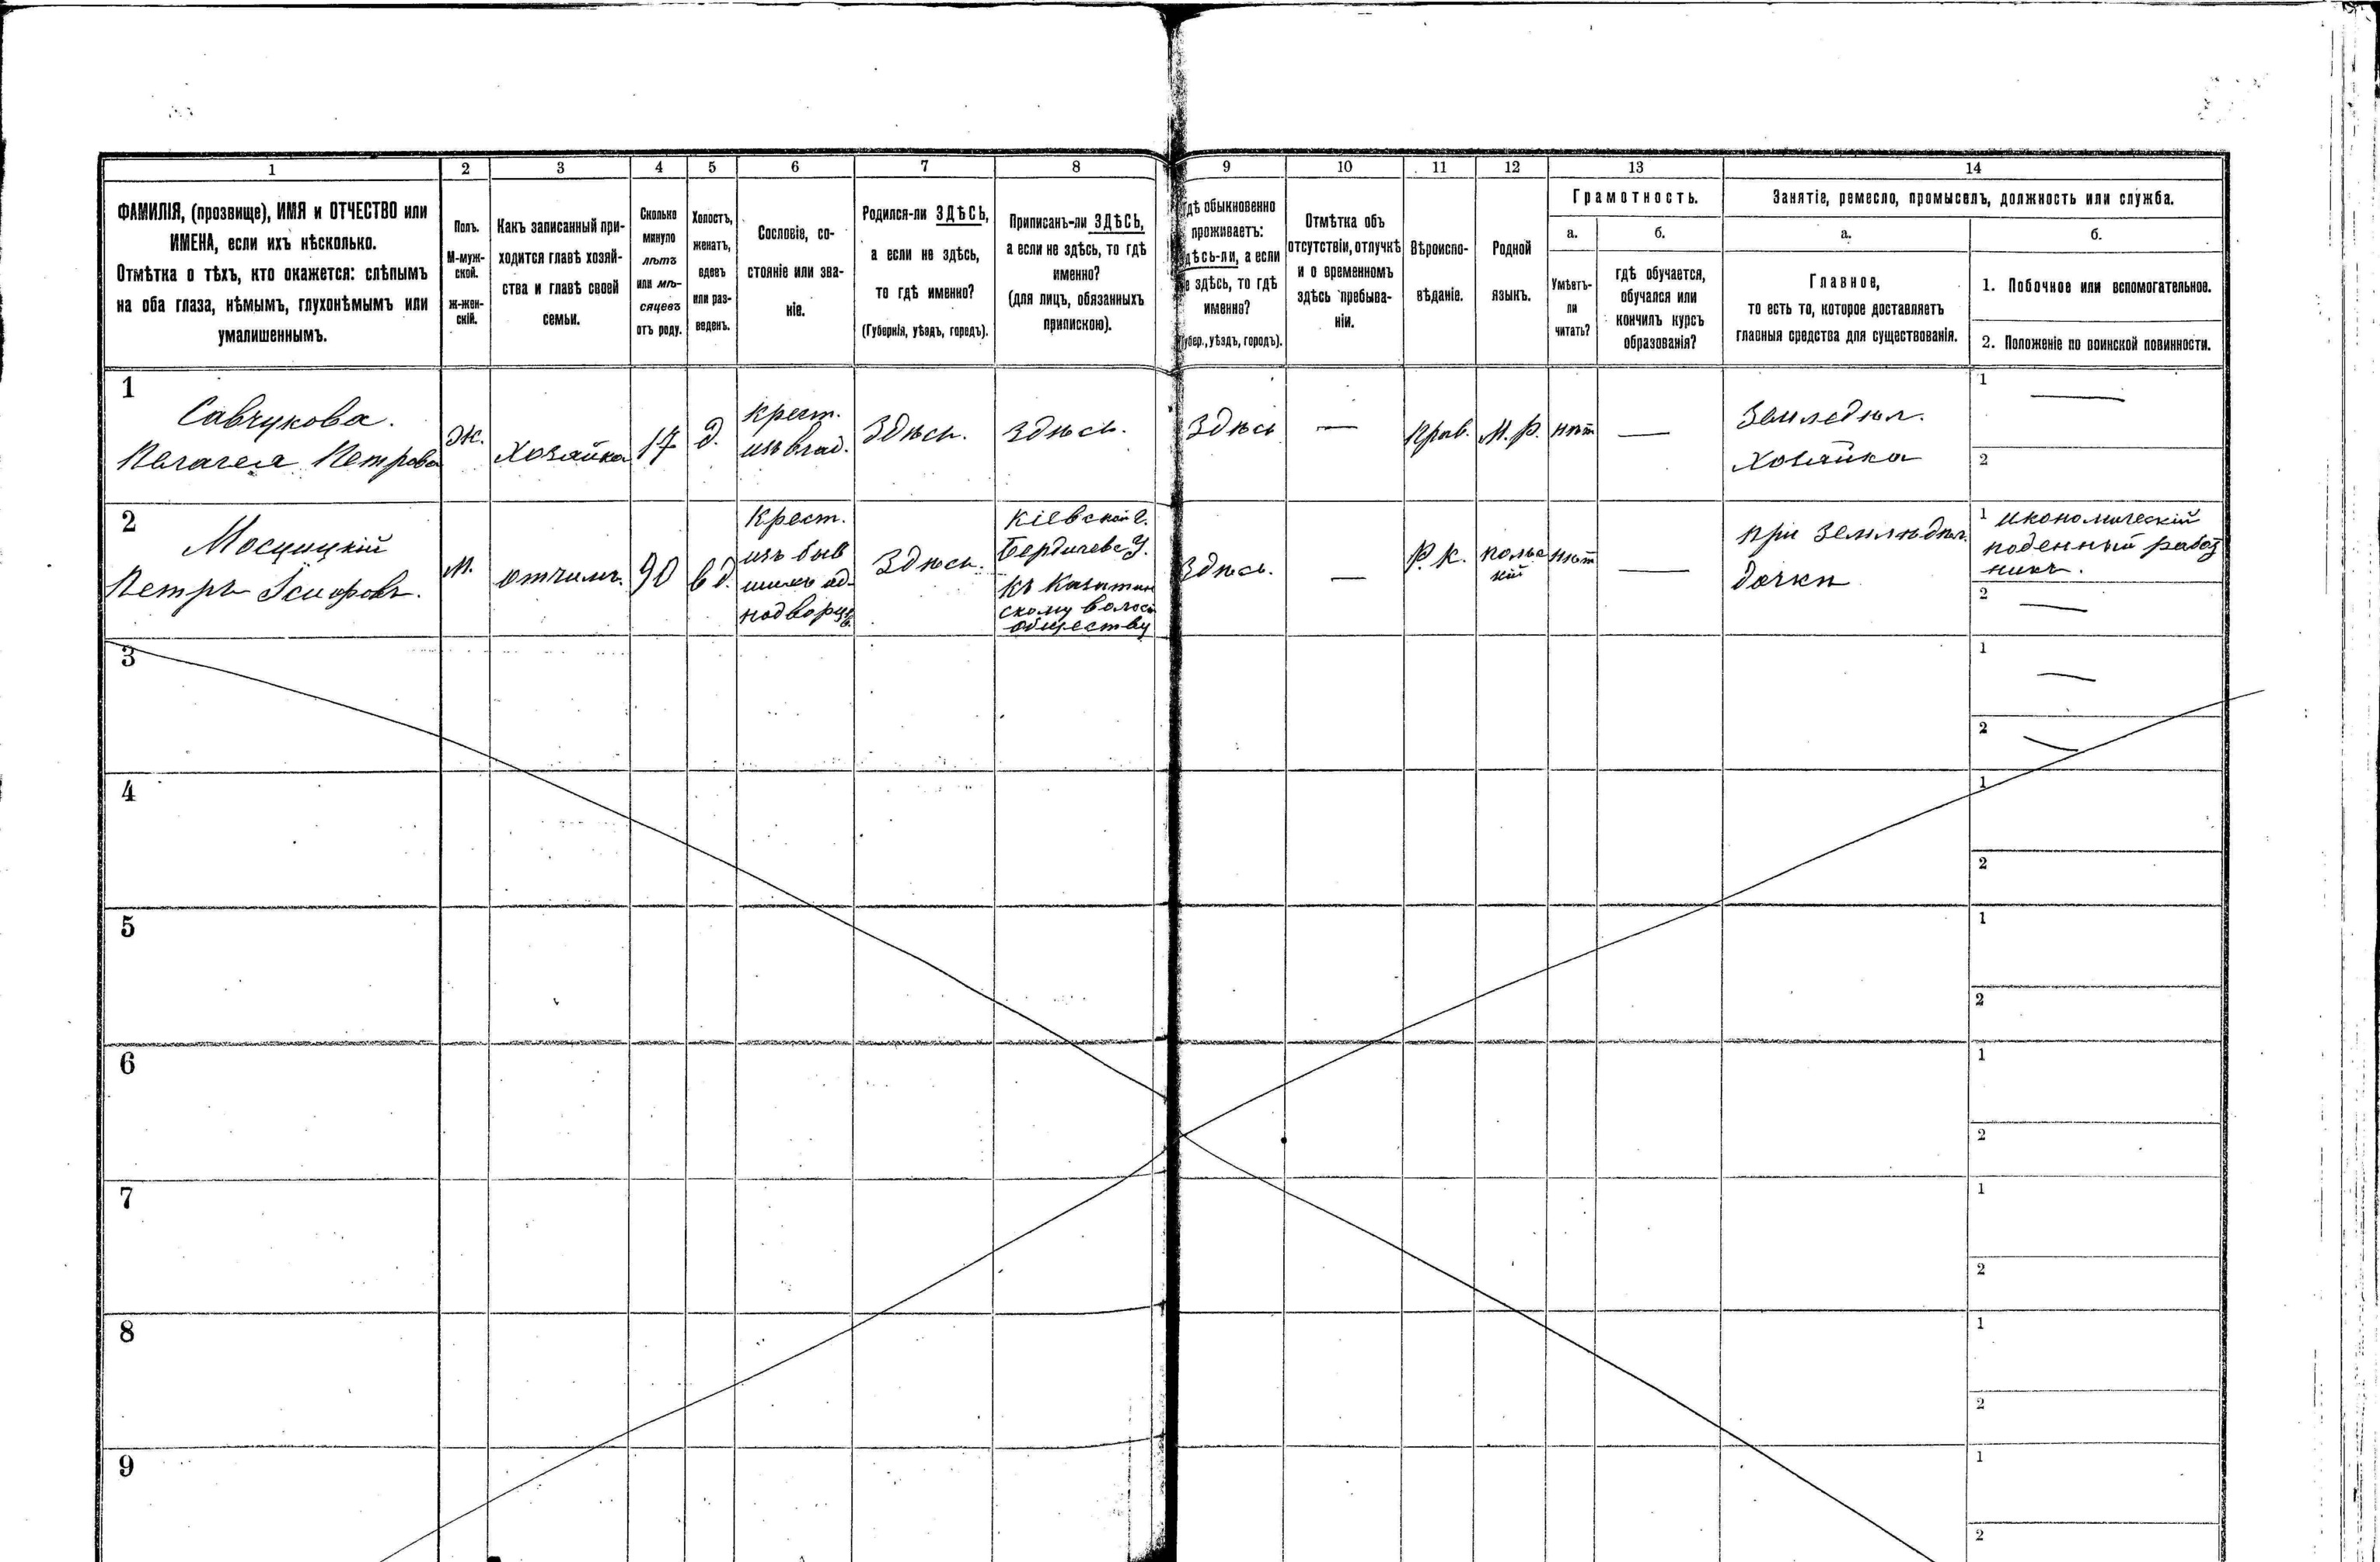 1
2
3
4
5
6
7
8
9
10
11
12
13
14
ФАМИЛІЯ, (прозвище), ИМЯ и ОТЧЕСТВО или
ИМЕНА, если ихъ нѣсколько.
Отмѣтка о тѣхъ, кто окажется: слѣпымъ
на оба глаза, нѣмымъ, глухонѣмымъ или
умалишеннымъ.
Полъ.
М-муж-
ской.
Ж-жен-
скій.
Какъ записанный при-
ходится главѣ хозяй-
ства и главѣ своей
семьи.
Сколько
минуло
лѣтъ
или мѣ-
сяцевъ
отъ роду.
Холостъ,
женатъ,
вдовъ
или раз-
веденъ.
Сословіе, со-
стояніе или зва-
ніе.
Родился-ли ЗДѢСЬ,
а если не здѣсь,
то гдѣ именно?
(Губернія, уѣздъ, городъ).
Приписанъ-ли ЗДѢСЬ,
а если не здѣсь, то гдѣ
именно?
(для лицъ, обязанныхъ
припискою).
Гдѣ обыкновенно
проживаетъ:
здѣсь-ли, а если
не здѣсь, то гдѣ
именно?
(Губер., уѣздъ, городъ).
Отмѣтка объ
отсутствіи, отлучкѣ
и о временномъ
здѣсь пребыва-
ніи.
Вѣроиспо-
вѣданіе.
Родной
языкъ.
Грамотность.
а.
Умѣетъ-
ли
читать?
б.
гдѣ обучается,
обучался или
кончилъ курсъ
образованія?
Занятіе, ремесло, промыселъ, должность или служба.
а.
Главное,
то есть то, которое доставляетъ
главныя средства для существованія.
б.
1. Побочное или вспомогательное.
2. Положеніе по воинской повинности.
1
Савчукова.
Пелагея Петрова
Ж.
Хозяйка
17
д.
крест.
изъ влад.
Здѣсь.
здѣсь.
Здѣсь
—
Прав.
М. Р.
нѣт
—
Земледѣл.
Хозяйка
1 —
2
2
Мосцицкій
Петръ
М.
отчимъ.
90
вд.
Крест.
изъ быв
шихъ од-
нодворцевъ
Здѣсь.
Кіевской г.
Бердичевс У.
къ Казатин
скому волост
обществу
Здѣсь.
—
Р. К.
польс
кій
нѣт
—
при Земледѣл.
дочки
1 икономическій
поденный работ
никъ.
2 —
3
1 —
2 —
4
1
2
5
1
2
6
1
2
7
1
2
8
1
2
9
1
2